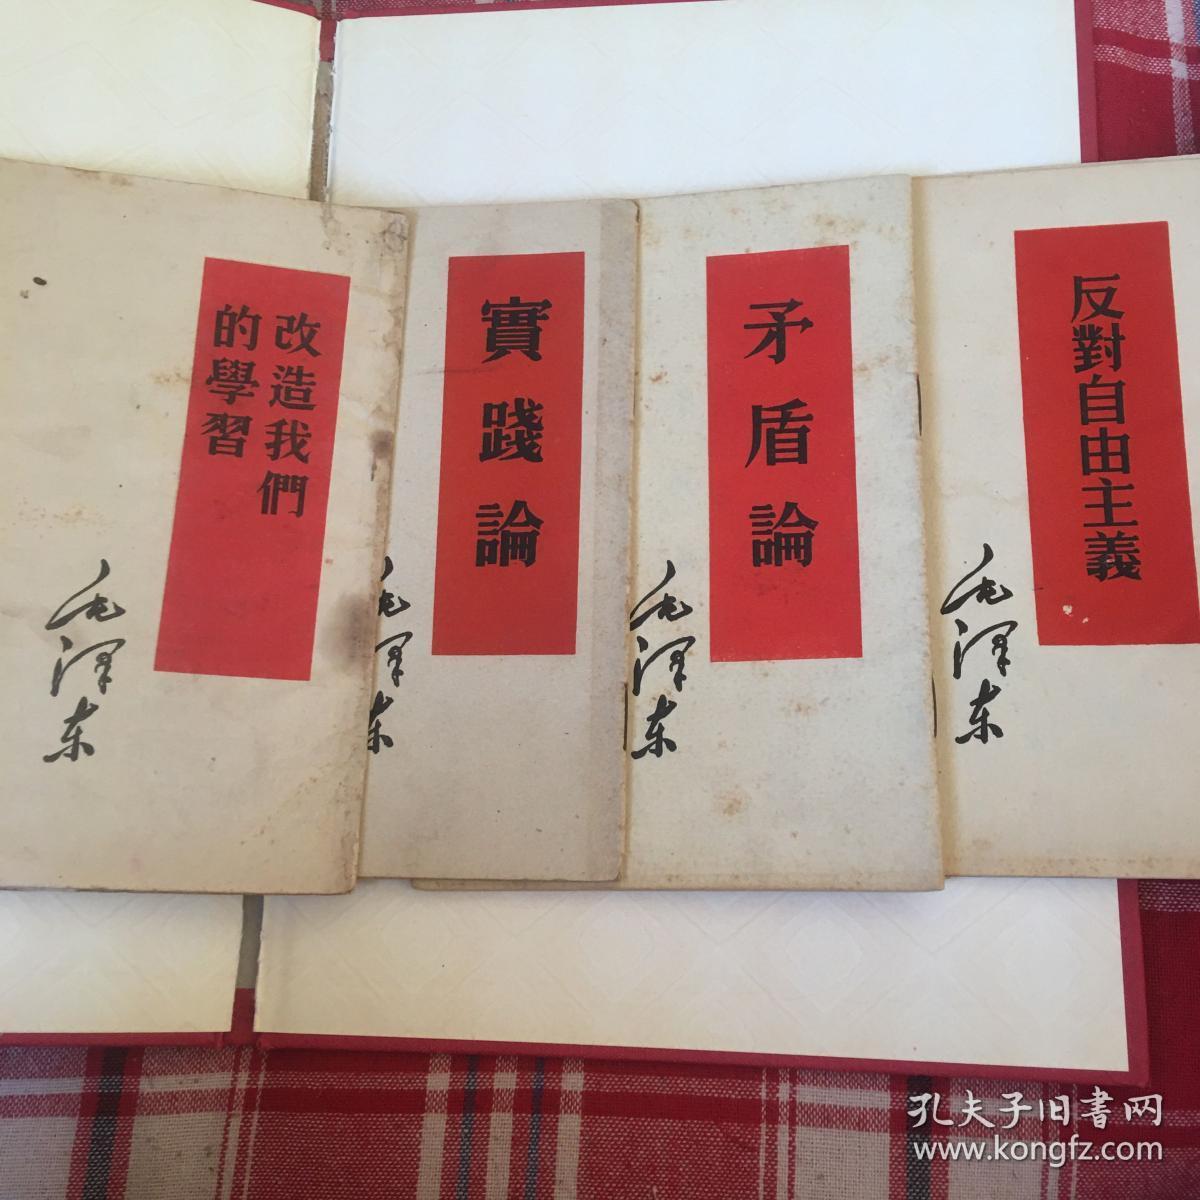 改造我們
的學習
毛澤东
實踐論
毛澤东
矛盾論
毛澤东
反對自由主義
毛澤东
孔夫子旧書网
www.kongfz.com